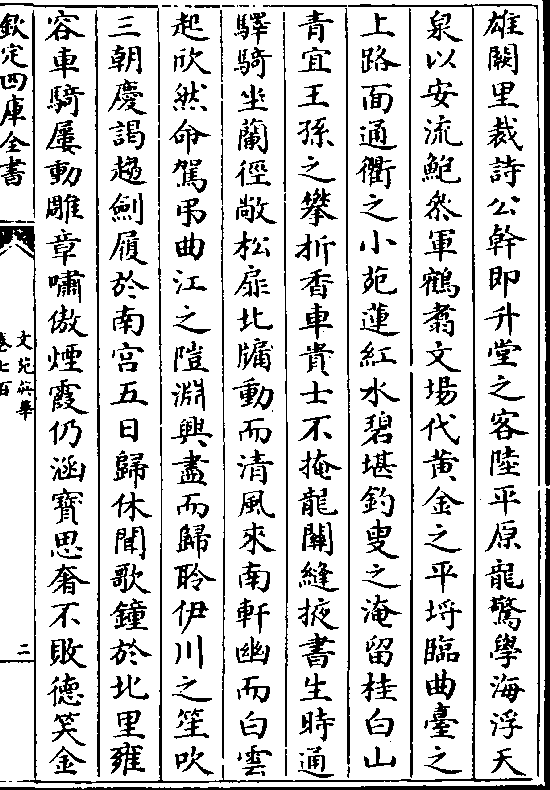 雄闕里裁詩公幹即升堂之客陸平原龍驚學海浮天
泉以安流鮑叅軍鶴翥文場代黃金之平埒臨曲臺之
上路面通衢之小苑蓮紅水碧堪釣叟之淹留桂白山
青宜王孫之攀折香車貴士不掩龍關縫掖書生時通
驛騎坐蘭徑敞松扉北牖動而清風來南軒幽而白雲
起欣然命駕弔曲江之隑淵興盡而歸聆伊川之笙吹
三朝慶謁趨劍履於南宮五日歸休聞歌鐘於北里雍
容車騎屢動雕章嘯傲煙霞仍涵寳思奢不敗德笑金
欽定四庫全書
文苑英華
卷七百
二